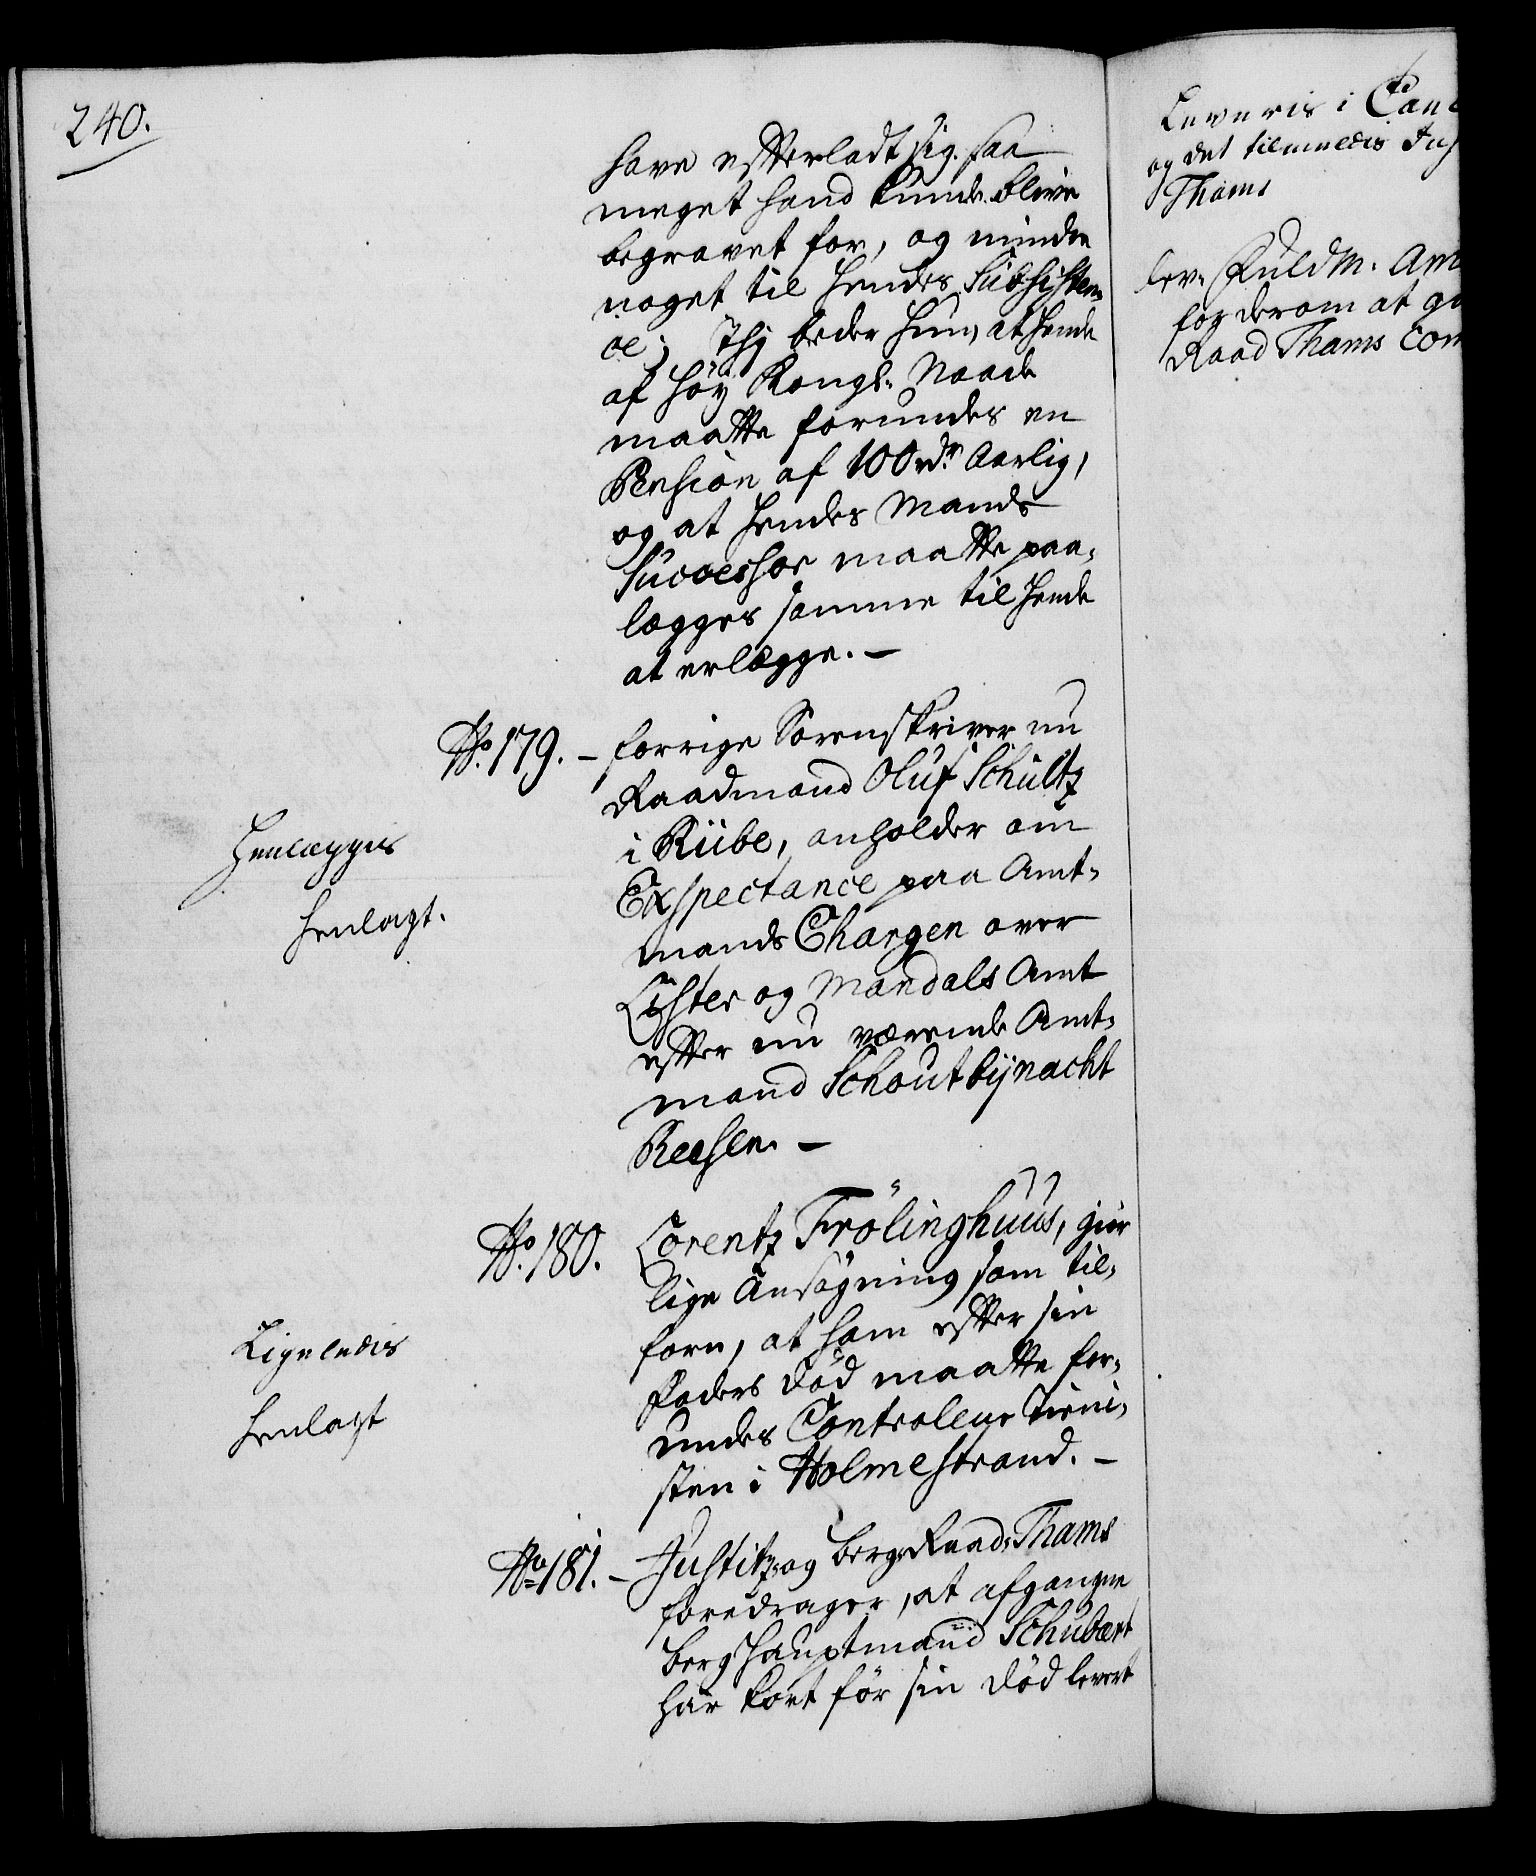 240.
have efterladt sig saa
meget hand kunde blive
begravet for, og mindre
noget til hendes Subsisten-
ce; Thj beder hun, at hende
af høy Kongl. Naade
maatte forundes en
Pension af 100 rdr. Aarlig,
og at hendes Mands
Successor maatte paa-
lægges samme til hende
at erlægge. –
No. 179. – forrige Sorenskriver nu
Raadmand Oluf Schultz
i Riibe, anholder om
Henlegges
Expectance paa Amt-
henlagt.
mands Chargen over
Lister og Mandals Amt
efter nu værende Amt-
mand Schoutbynacht
Reesen. –
No. 180. Lorentz Frölinghuus, giør
lige Ansøgning som til-
forn, at ham efter sin
Ligeledis
Faders død maatte for-
henlagt
undes Controleur Tieni-
sten i Holmestrand. –
No 181. – Justitz- og Berg-Raad Thams
foredrager, at afgangne
Berghauptmand Schubart
har kort før sin død levert
Leveris i Can
og det tilmeldis Jus
Thams
lev. Fuldm. Am
for derom at gi
Raad Thams Com